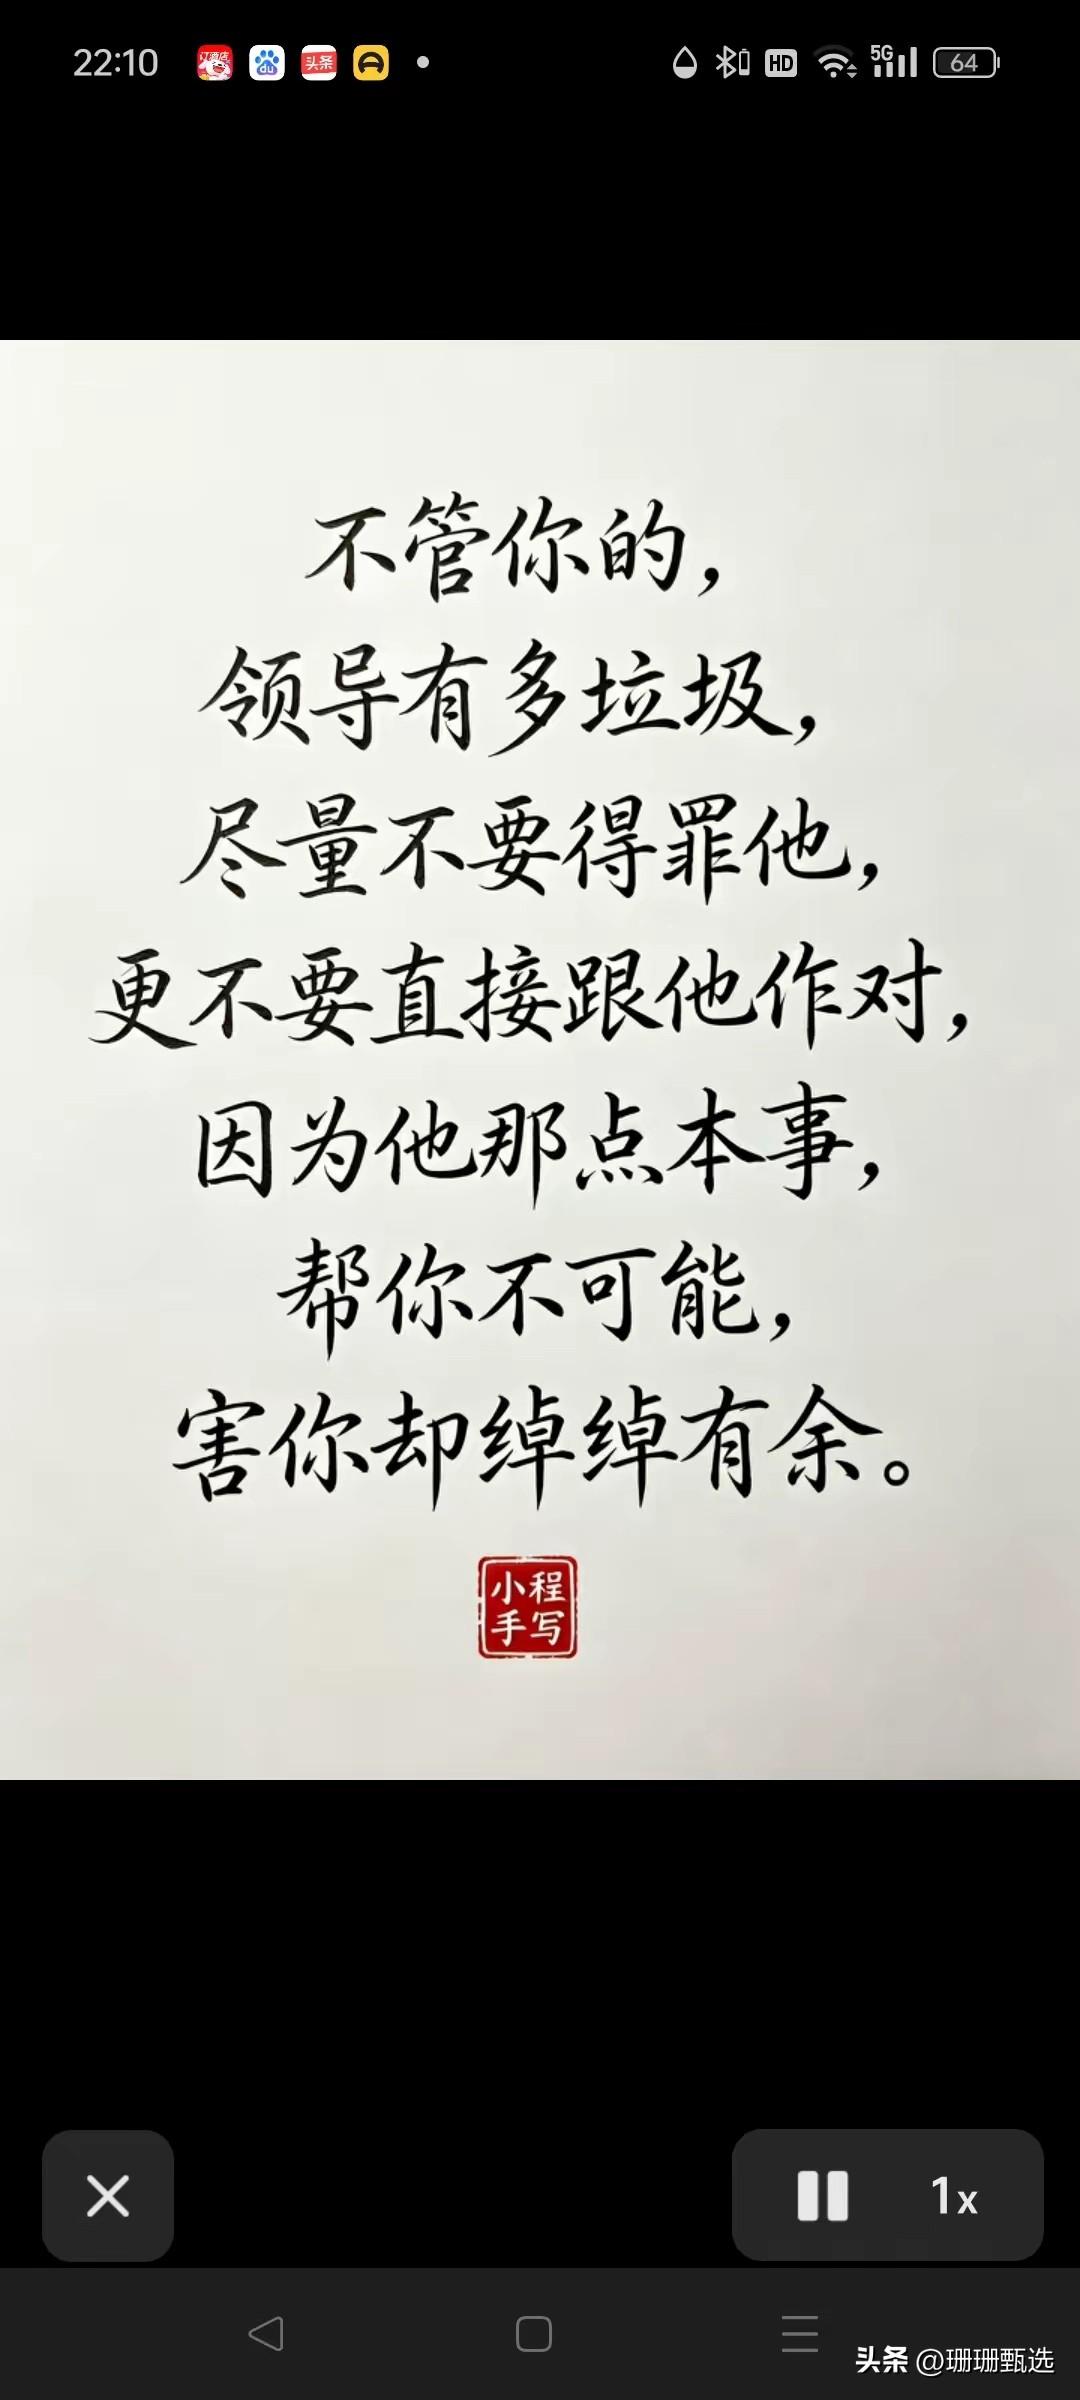 22:10
订酒店
du
头条
HD
5G
64
不管你的，
领导有多垃圾，
尽量不要得罪他，
更不要直接跟他作对，
因为他那点本事，
帮你不可能，
害你却绰绰有余。
小程
手写
1x
头条 @珊珊甄选